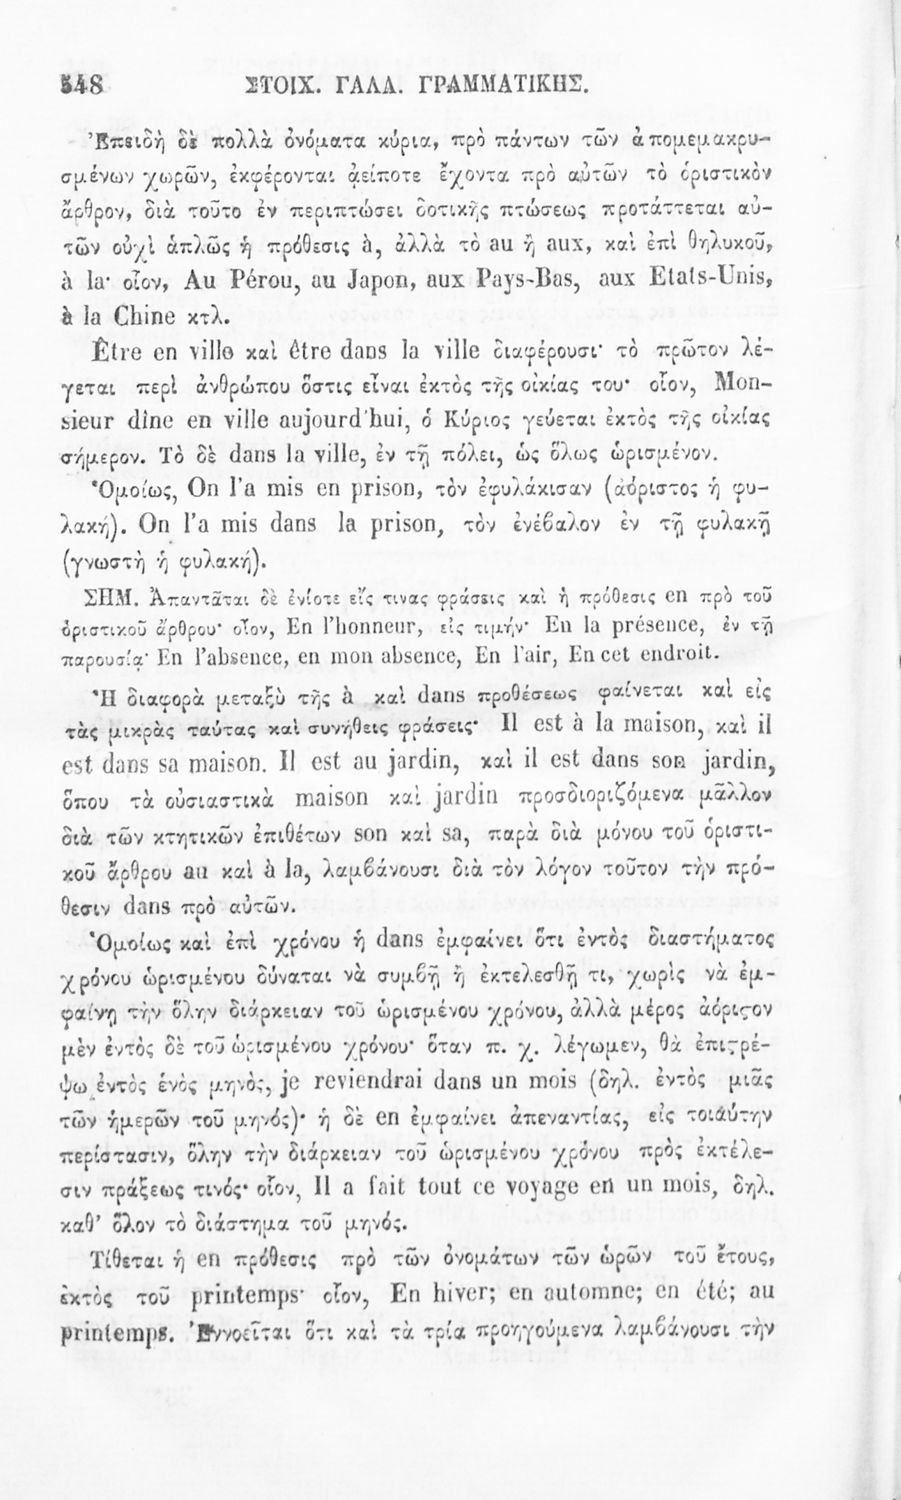 548 ΣΤΟΙΧ. ΓΑΛΛ. ΓΡΑΜΜΑΤΙΚΗΣ.
Ἐπειδὴ δὲ πολλὰ ὀνόματα κύρια, πρὸ πάντων τῶν ἀπομεμακρυ-
σμένων χωρῶν, ἐκφέρονται ἀείποτε ἔχοντα πρὸ αὐτῶν τὸ ὁριστικὸν
ἄρθρον, διὰ τοῦτο ἐν περιπτώσει δοτικῆς πτώσεως προτάττεται αὐ-
τῶν οὐχὶ ἁπλῶς ἡ πρόθεσις à, ἀλλὰ τὸ au ἢ aux, καὶ ἐπὶ θηλυκοῦ,
à la· οἷον, Au Pérou, au Japon, aux Pays-Bas, aux Etats-Unis,
à la Chine κτλ.
Être en ville καὶ être dans la ville διαφέρουσι· τὸ πρῶτον λέ-
γεται περὶ ἀνθρώπου ὅστις εἶναι ἐκτὸς τῆς οἰκίας του· οἷον, Mon-
sieur dîne en ville aujourd'hui, ὁ Κύριος γεύεται ἐκτὸς τῆς οἰκίας
σήμερον. Τὸ δὲ dans la ville, ἐν τῇ πόλει, ὡς ὅλως ὡρισμένον.
Ὁμοίως, On l'a mis en prison, τὸν ἐφυλάκισαν (ἀόριστος ἡ φυ-
λακή). On l'a mis dans la prison, τὸν ἐνέβαλον ἐν τῇ φυλακῇ
(γνωστὴ ἡ φυλακή).
ΣΗΜ. Ἀπαντᾶται δὲ ἐνίοτε εἴς τινας φράσεις καὶ ἡ πρόθεσις en πρὸ τοῦ
ὁριστικοῦ ἄρθρου· οἷον, En l'honneur, εἰς τιμήν· En la présence, ἐν τῇ
παρουσίᾳ· En l'absence, en mon absence, En l'air, En cet endroit.
Ἡ διαφορὰ μεταξὺ τῆς à καὶ dans προθέσεως φαίνεται καὶ εἰς
τὰς μικρὰς ταύτας καὶ συνήθεις φράσεις· Il est à la maison, καὶ il
est dans sa maison. Il est au jardin, καὶ il est dans son jardin,
ὅπου τὰ οὐσιαστικὰ maison καὶ jardin προσδιοριζόμενα μᾶλλον
διὰ τῶν κτητικῶν ἐπιθέτων son καὶ sa, παρὰ διὰ μόνου τοῦ ὁριστι-
κοῦ ἄρθρου au καὶ à la, λαμβάνουσι διὰ τὸν λόγον τοῦτον τὴν πρό-
θεσιν dans πρὸ αὐτῶν.
Ὁμοίως καὶ ἐπὶ χρόνου ἡ dans ἐμφαίνει ὅτι ἐντὸς διαστήματος
χρόνου ὡρισμένου δύναται νὰ συμβῇ ἢ ἐκτελεσθῇ τι, χωρὶς νὰ ἐμ-
φαίνῃ τὴν ὅλην διάρκειαν τοῦ ὡρισμένου χρόνου, ἀλλὰ μέρος ἀόριϛον
μὲν ἐντὸς δὲ τοῦ ὡρισμένου χρόνου· ὅταν π. χ. λέγωμεν, θὰ ἐπιϛρέ-
ψω ἐντὸς ἑνὸς μηνὸς, je reviendrai dans un mois (δηλ. ἐντὸς μιᾶς
τῶν ἡμερῶν τοῦ μηνός)· ἡ δὲ en ἐμφαίνει ἀπεναντίας, εἰς τοιαύτην
περίστασιν, ὅλην τὴν διάρκειαν τοῦ ὡρισμένου χρόνου πρὸς ἐκτέλε-
σιν πράξεως τινός· οἷον, Il a fait tout ce voyage en un mois, δηλ.
καθ' ὅλον τὸ διάστημα τοῦ μηνός.
Τίθεται ἡ en πρόθεσις πρὸ τῶν ὀνομάτων τῶν ὡρῶν τοῦ ἔτους,
ἐκτὸς τοῦ printemps· οἷον, En hiver; en automne; en été; au
printemps. Ἐννοεῖται ὅτι καὶ τὰ τρία προηγούμενα λαμβάνουσι τὴν